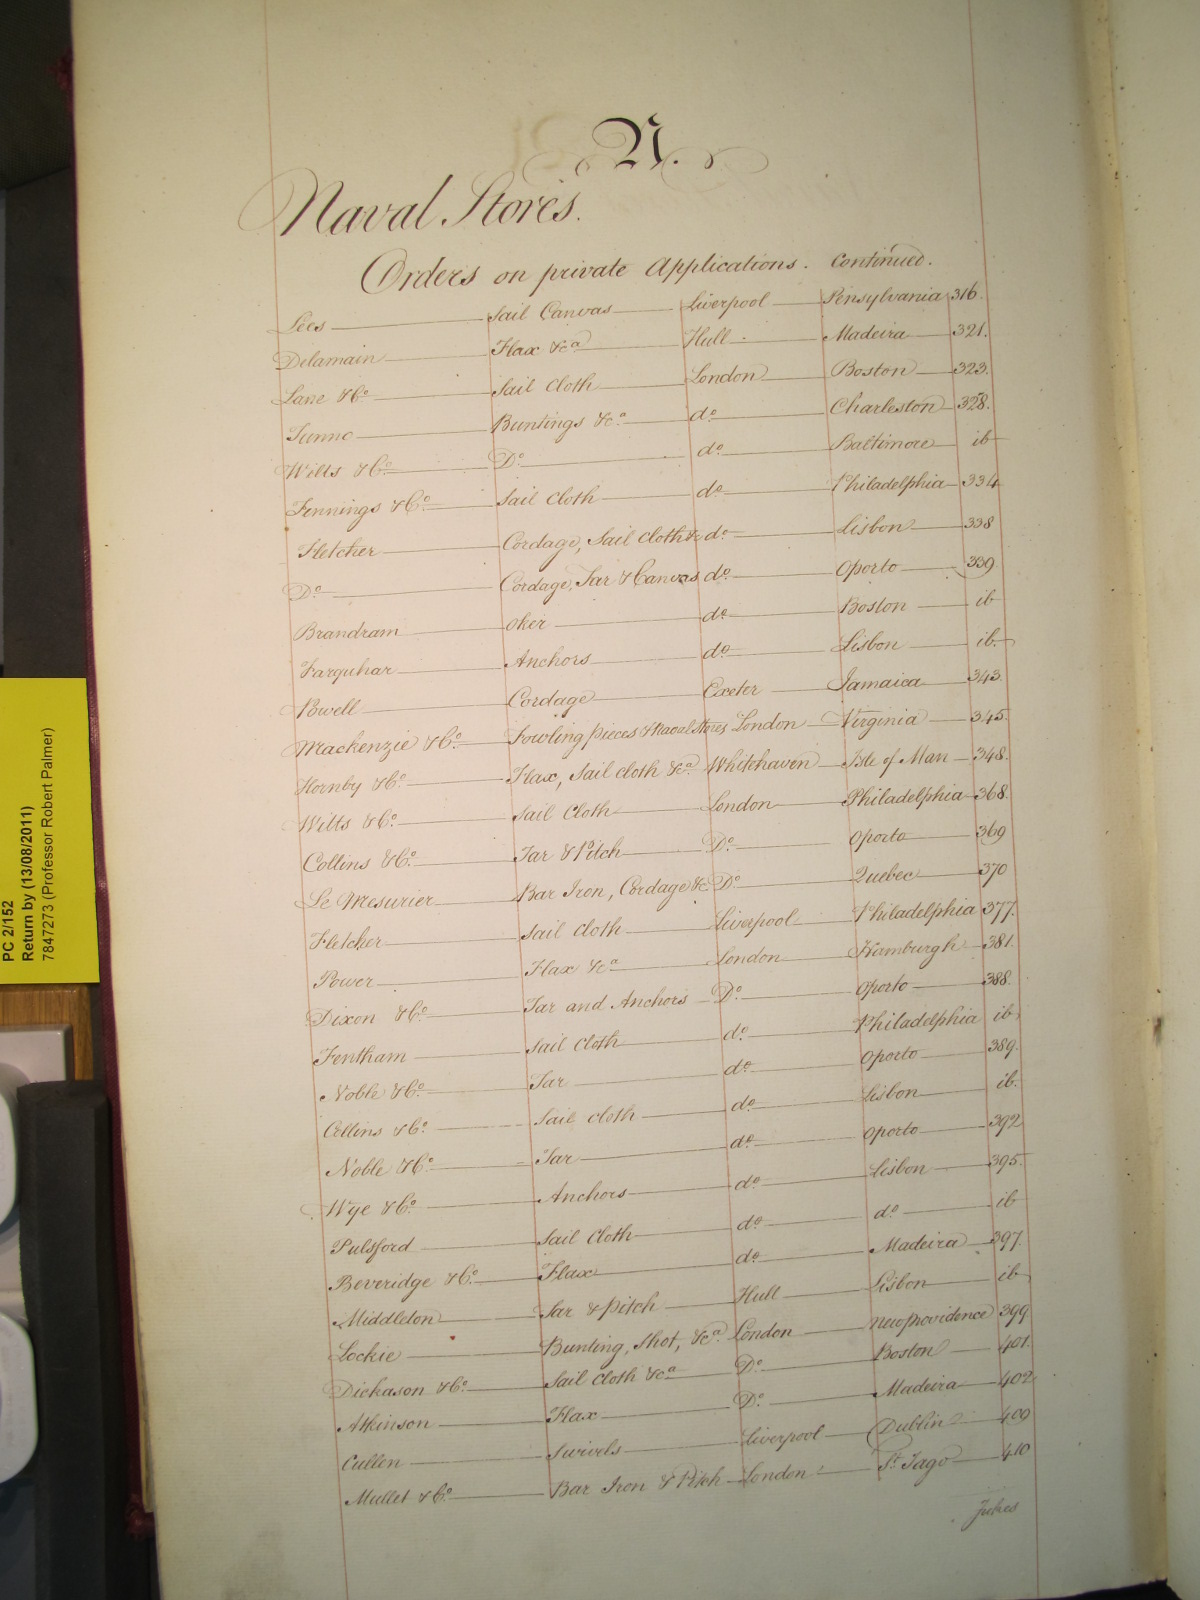 N.
Naval Stores.
Orders on private Applications. Continued.
Lees Sail Canvas Liverpool Pensylvania 316.
Delamain Flax &ca Hull Madeira 321.
Lane & Co. Sail Cloth London Boston 323.
Tunno Buntings &ca. do Charleston 328.
Wilts & Co. Do. do. Baltimore ib
Jennings & Co. Sail Cloth do. Philadelphia 334
Fletcher Cordage, Sail Cloth &c do. Lisbon 338
Do. Cordage, Tar & Canvas do. Oporto 339
Brandram Oker do. Boston ib
Farquhar Anchors do. Lisbon ib.
Powell Cordage Exeter Jamaica 343.
Mackenzie & Co. Fowling pieces & Naval Stores London Virginia 345.
Hornby & Co. Flax, Sail Cloth &ca Whitehaven Isle of Man 348.
Wilts & Co. Sail Cloth London Philadelphia 368.
Collins & Co. Tar & Pitch Do. Oporto 369
Le Mesurier Bar Iron, Cordage &c Do. Quebec 370
Fletcher Sail Cloth Liverpool Philadelphia 377.
Power Flax &ca London Hamburgh 381.
Dixon & Co. Tar and Anchors Do. Oporto 388.
Fentham Sail Cloth do. Philadelphia ib.
Noble & Co. Tar do. Oporto 389.
Collins & Co. Sail Cloth do. Lisbon ib.
Noble & Co. Tar do. Oporto 392
Wye & Co. Anchors do. Lisbon 395.
Pulsford Sail Cloth do. do. ib
Beveridge & Co. Flax do. Madeira 397.
Middleton Tar & Pitch Hull Lisbon ib
Lockie Bunting, Shot, &ca. London New providence 399.
Dickason & Co. Sail Cloth &ca Do. Boston 401.
Atkinson Flax Do. Madeira 402.
Cullen Swivels Liverpool Dublin 409
Mullet & Co. Bar Iron & Pitch London St. Jago 410
Jukes
PC 2/152
Return by (13/08/2011)
7847273 (Professor Robert Palmer)